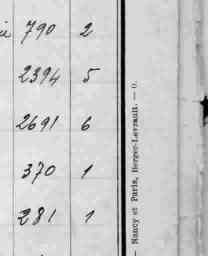 790 2
2394 5
2691 6
370 1
281 1
— Nancy et Paris, Berger-Levrault. — O.